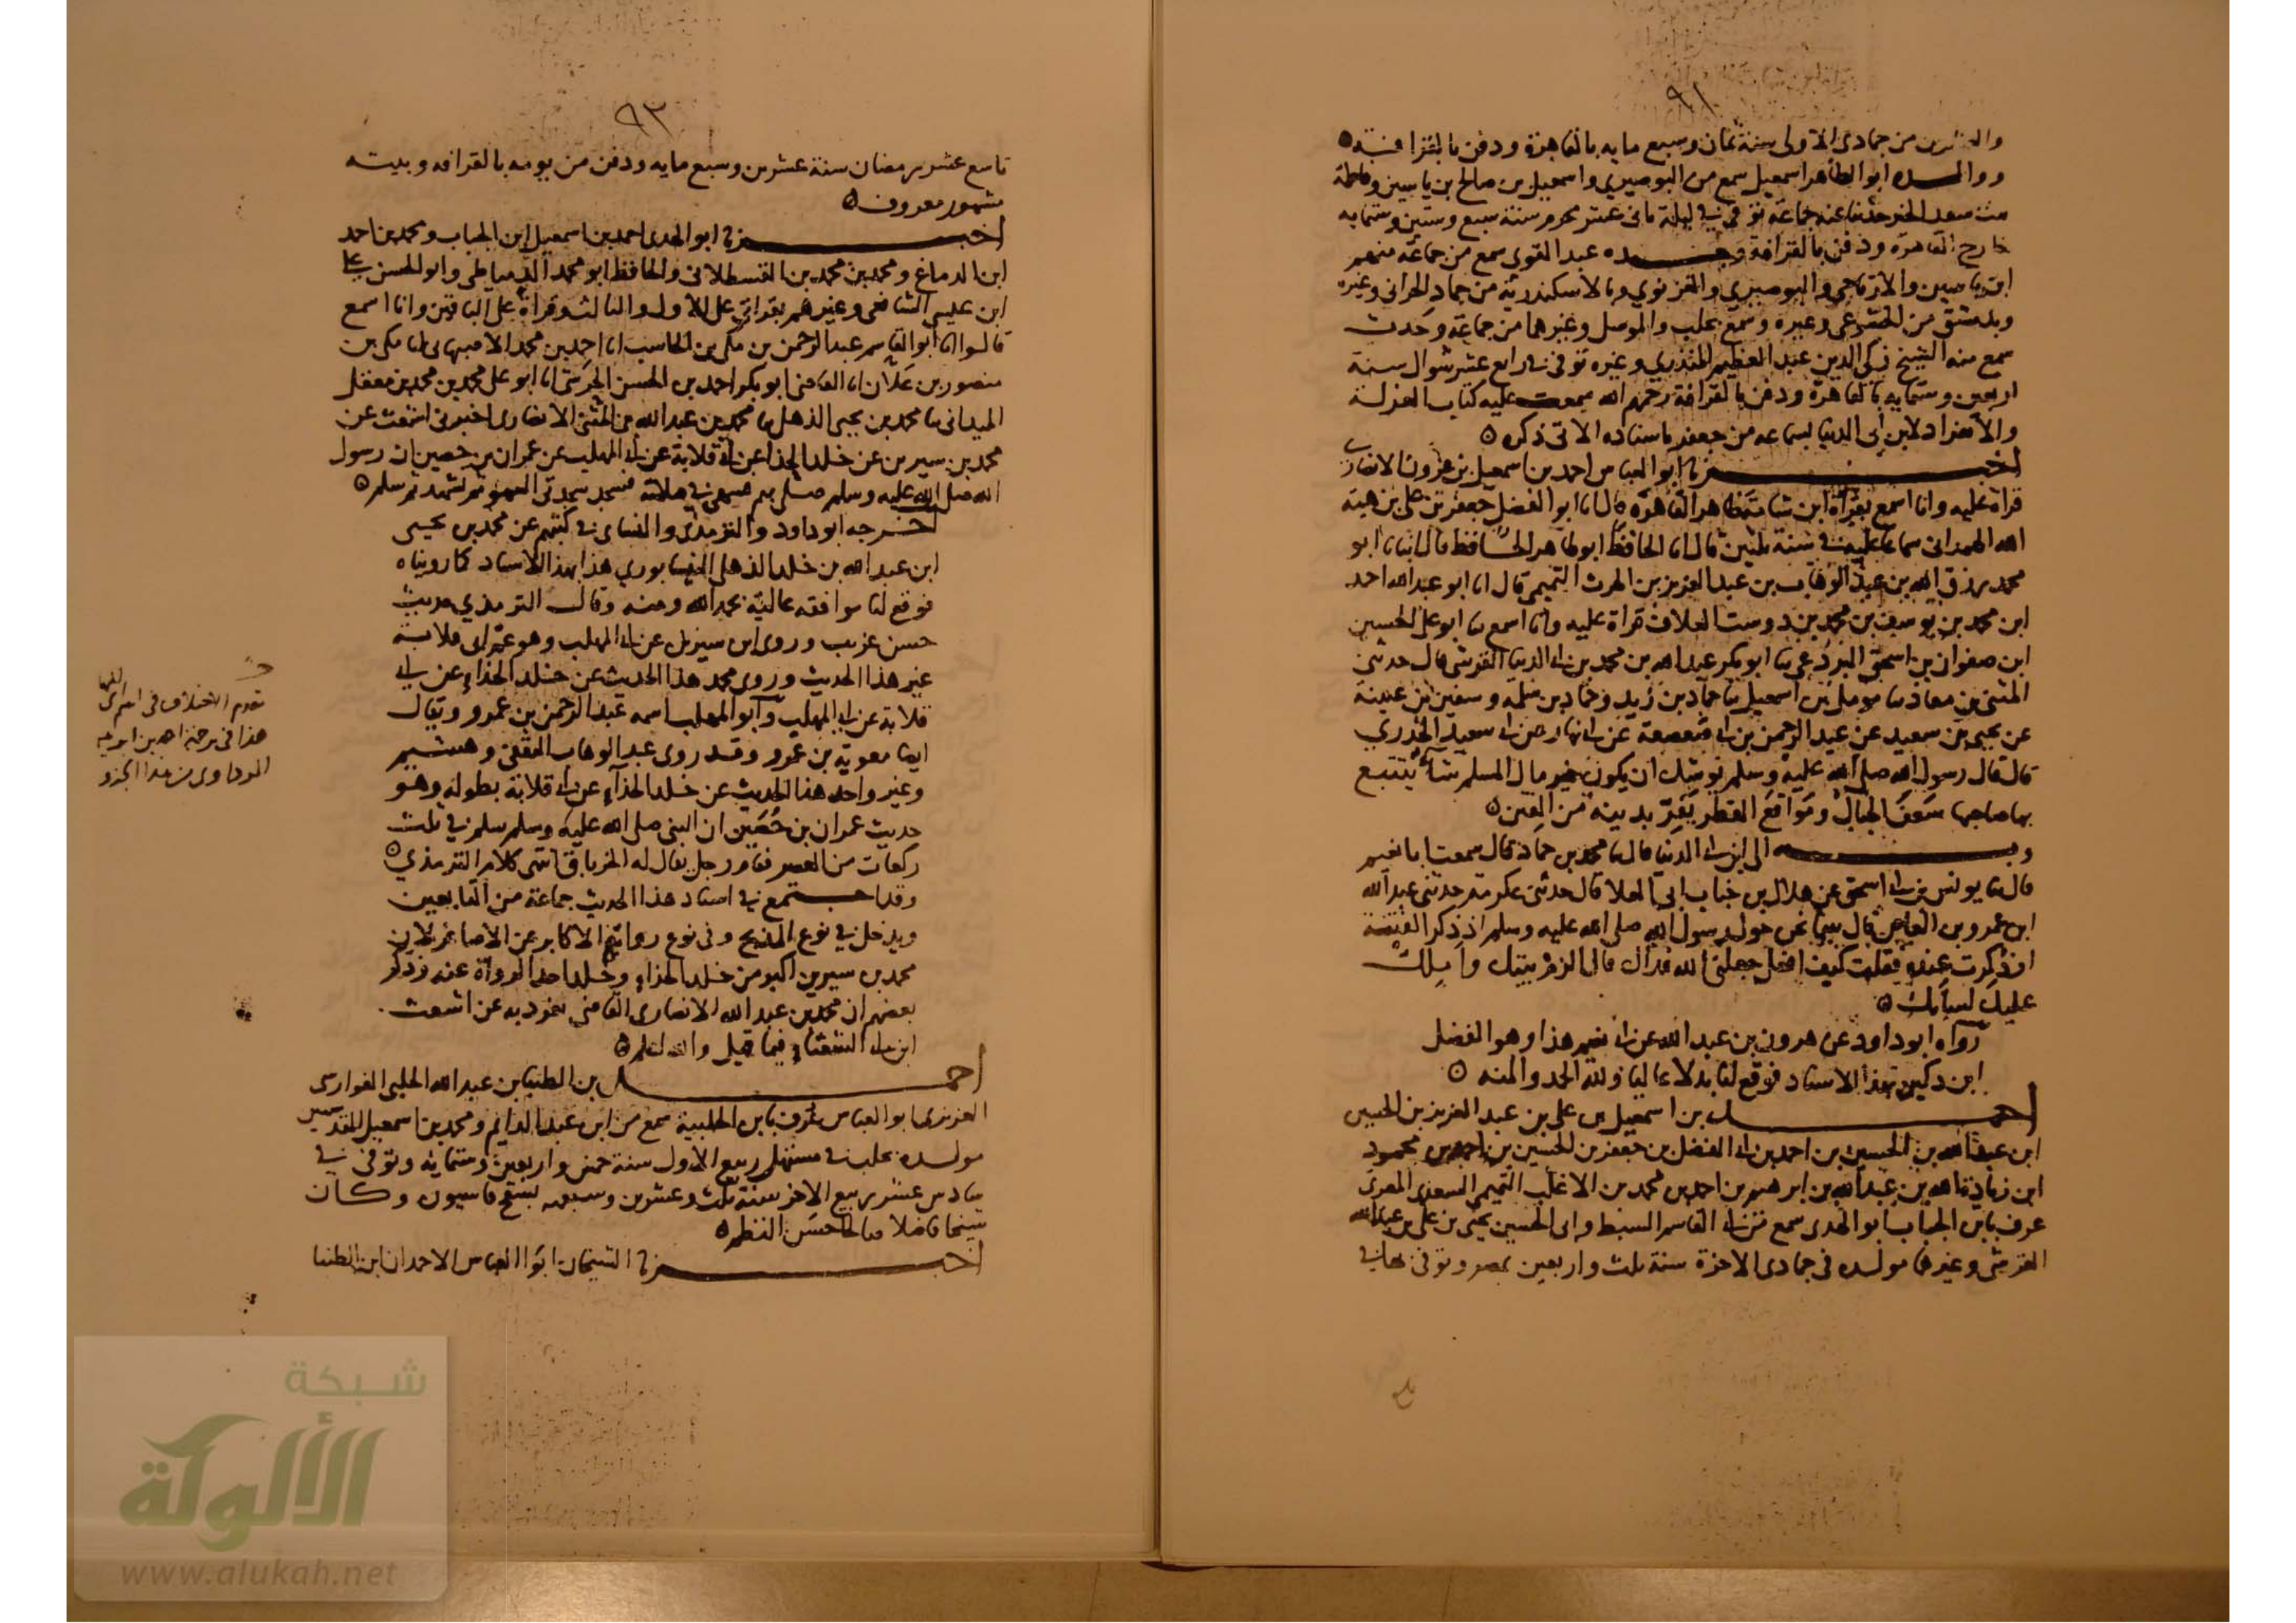 ٩١
والعشرين من جمادى الاولى سنة ثمان وسبع مايه بالقاهرة ودفن بالقرافة ه
ووالده ابو الطاهر اسمعيل سمع من البوصيري واسمعيل بن صالح بن ياسين وفاطمة
بنت سعد الخير حدثنا عنه جماعة توفي في ليلة ثاني عشر محرم سنة سبع وستين وستمايه
خارج القاهرة ودفن بالقرافة وجده عبد القوى سمع من جماعة منهم
ابن ياسين والارتاحي والبوصيري والغزنوي وبالاسكندرية من حماد الحراني وغيره
وبدمشق من الخشوعي وغيره وسمع بحلب والموصل وغيرهما من جماعة وحدث
سمع منه الشيخ زكى الدين عبد العظيم المنذري وغيره توفى في رابع عشر شوال سنة
اربعين وستمايه بالقاهرة ودفن بالقرافة رحمهم الله سمعت عليه كتاب العزلة
والانفراد لابن أبى الدنيا بسماعه من جعفر باسناده الاتى ذكره ه
اخبرنا ابو العباس احمد بن اسمعيل بن عزون الانصارى
قراة عليه وانا اسمع بقراة ابن شامة بظاهر القاهرة قال انا ابو الفضل جعفر بن على بن هبة
الله الهمدانى سماعا عليه في سنة ثلثين قال انا الحافظ ابو طاهر الحافظ قال انبانا ابو
محمد رزق الله بن عبد الوهاب بن عبد العزيز بن الحرث التميمى قال انا ابو عبد الله احمد
ابن محمد بن يوسف بن محمد بن دوست العلاف قراة عليه وانا اسمع نا ابو على الحسين
ابن صفوان بن اسحق البرذعي نا ابو بكر عبد الله بن محمد بن ابى الدنيا القرشى قال حدثنى
المثنى بن معاذ نا مومل بن اسمعيل نا حماد بن زيد وحماد بن سلمه وسفين بن عيينة
عن يحيى بن سعيد عن عبد الرحمن بن ابى صعصعة عن ابى سعيد الخدري
قال قال رسول الله صلى الله عليه وسلم يوشك ان يكون خير مال المسلم شاء يتتبع
بها صاحبها سعف الجبال ومواقع القطر يفر بدينه من الفتن ه
وبه الى ابن ابى الدنيا قال نا محمد بن حماد قال سمعت ابا نعيم
قال نا يونس بن ابى اسحق عن هلال بن خباب ابى العلا قال حدثنى عكرمة حدثنى عبد الله
ابن عمرو بن العاص قال بينا نحن حول رسول الله صلى الله عليه وسلم اذ ذكر الفتنة
او ذكرت عنده فقلت كيف افعل جعلنى الله فداك قال الزم بيتك واملك
عليك لسانك ه
رواه ابو داود عن هرون بن عبد الله عن ابى نعيم هذا وهو الفضل
ابن دكين بهذا الاسناد فوقع لنا بدلا عاليا ولله الحمد والمنه ه
احمد بن اسمعيل بن على بن عبد العزيز بن الحسين
ابن عبد الله بن الحسين بن احمد بن ابى الفضل بن جعفر بن الحسين بن احمد بن محمود
ابن زيادة الله بن عبد الله بن ابرهيم بن احمد بن محمد بن الاغلب التميمى السعدى المصرى
عرف بابن الجباب ابو الهدى سمع من ابى القاسم السبط وابى الحسين يحيى بن على بن عبد الله
القرشى وغيرهما مولده في جمادى الاخرة سنة ثلث واربعين بمصر وتوفى بها في
٩٢
تاسع عشر رمضان سنة عشرين وسبع مايه ودفن من يومه بالقرافه وبيته
مشهور معروف ه
اخبرنا ابو الهدى احمد بن اسمعيل ابن الجباب ومحمد بن احمد
ابن الدماغ ومحمد بن محمد بن القسطلانى والحافظ ابو محمد الدمياطى وابو الحسن على
ابن عيسى الشافعى وغيرهم بقراتى على الاول والثالث وقراة على الباقين وانا اسمع
قالوا انا ابو القاسم عبد الرحمن بن مكى بن الحاسب انا احمد بن محمد الاصبهانى انا مكى بن
منصور بن علان انا القاضى ابو بكر احمد بن الحسن الحرشى انا ابو على محمد بن محمد بن معقل
الميدانى نا محمد بن يحيى الذهلى نا محمد بن عبد الله بن المثنى الانصارى اخبرنى اشعث عن
محمد بن سيرين عن خلد الحذا عن ابى قلابة عن ابى المهلب عن عمران بن حصين ان رسول
الله صلى الله عليه وسلم صلى بهم فسهى في صلاته فسجد سجدتى السهو ثم تشهد ثم سلم ه
اخرجه ابو داود والترمذى والنساى في كتبهم عن محمد بن يحيى
ابن عبد الله بن خلد الذهلى النيسابوري هذا بهذا الاسناد كما رويناه
فوقع لنا موافقه عالية بحمد الله ومنه وقال الترمذي حديث
حسن غريب وروى ابن سيرين عن ابى المهلب وهو عم ابى قلابة
غير هذا الحديث وروى محمد هذا الحديث عن خلد الحذاء عن ابى
قلابة عن ابى المهلب وابو المهلب اسمه عبد الرحمن بن عمرو ويقال
ايضا معوية بن عمرو وقد روى عبد الوهاب الثقفى وهشيم
وغير واحد هذا الحديث عن خلد الحذاء عن ابى قلابة بطوله وهو
حديث عمران بن حصين ان النبى صلى الله عليه وسلم سلم في ثلث
ركعات من العصر فقام رجل يقال له الخرباق انتهى كلام الترمذي ه
وقد اجتمع في اسناد هذا الحديث جماعة من التابعين
ويدخل في نوع المدبج وفى نوع رواية الاكابر عن الاصاغر لان
محمد بن سيرين اكبر من خلد الحذاء وخلد احد الرواة عنه وذكر
بعضهم ان محمد بن عبد الله الانصارى القاضى تفرد به عن اشعث
ابن ابى الشعثاء فيما قيل والله اعلم ه
احمد بن الطنبا بن عبد الله الحلبى الفوارسى
العزيزى ابو العباس عرف بابن الحلبية سمع من ابن عبد الدايم ومحمد بن اسمعيل المقدسيين
مولده بحلب في مستهل ربيع الاول سنة خمس واربعين وستمايه وتوفى في
سادس عشر ربيع الاخر سنة ثلث وعشرين وسبعمه بسفح قاسيون وكان
شيخا فاضلا صالحا حسن النظم ه
اخبرنا الشيخان ابوا العباس الاحمدان ابن الطنبا
تقدم الاختلاف فى اسم ابى المهلب
هذا فى ترجمة احمد بن ابرهيم
من هذا الجزو
شبكة
الألوكة
www.alukah.net